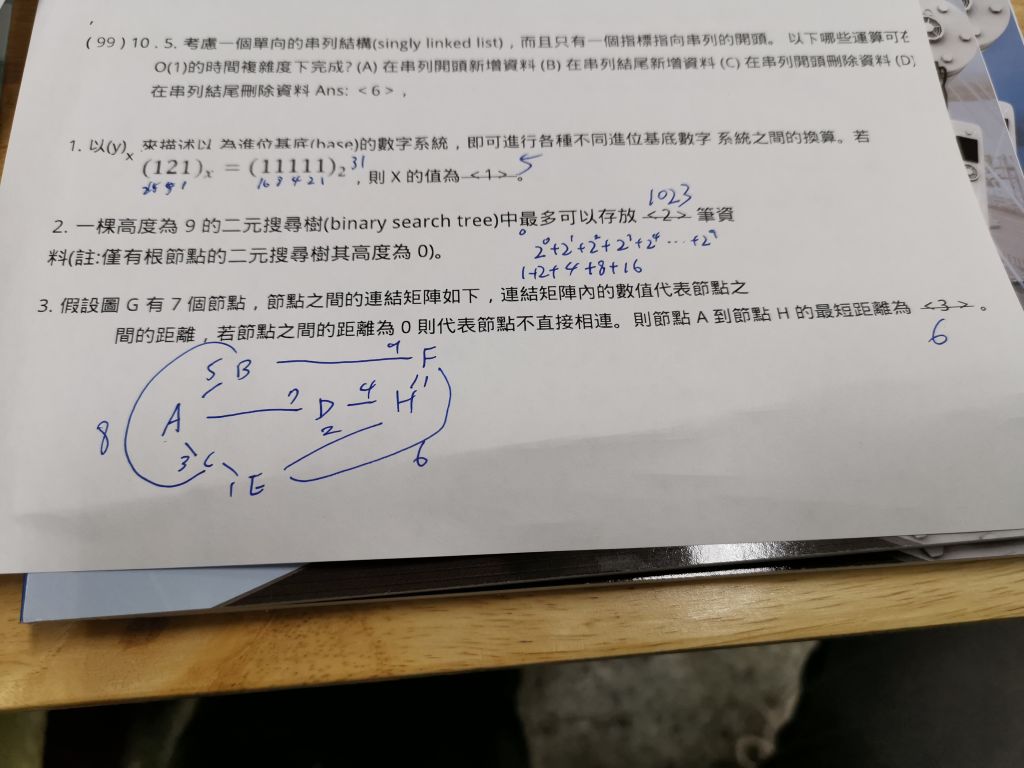 (99)10.5. 考慮一個單向的串列結構(singly linked list)，而且只有一個指標指向串列的開頭。 以下哪些運算可在
O(1)的時間複雜度下完成? (A) 在串列開頭新增資料 (B) 在串列結尾新增資料 (C) 在串列開頭刪除資料 (D)
在串列結尾刪除資料 Ans: <6>，
1. 以(y)x 來描述以 為進位基底(base)的數字系統，即可進行各種不同進位基底數字 系統之間的換算。若
(121)x = (11111)2 31，則 X 的值為 <1>。 5
25 5 1 16 8 4 2 1
1023
2. 一棵高度為 9 的二元搜尋樹(binary search tree)中最多可以存放 <2> 筆資
料(註:僅有根節點的二元搜尋樹其高度為 0)。
0
2^0+2^1+2^2+2^3+2^4 ... +2^9
1+2+4+8+16
3. 假設圖 G 有 7 個節點，節點之間的連結矩陣如下，連結矩陣內的數值代表節點之
間的距離，若節點之間的距離為 0 則代表節點不直接相連。則節點 A 到節點 H 的最短距離為 <3>。
6
5 B 9 F
A 7 D 4 H 11
8 3 C 2 6
1 E